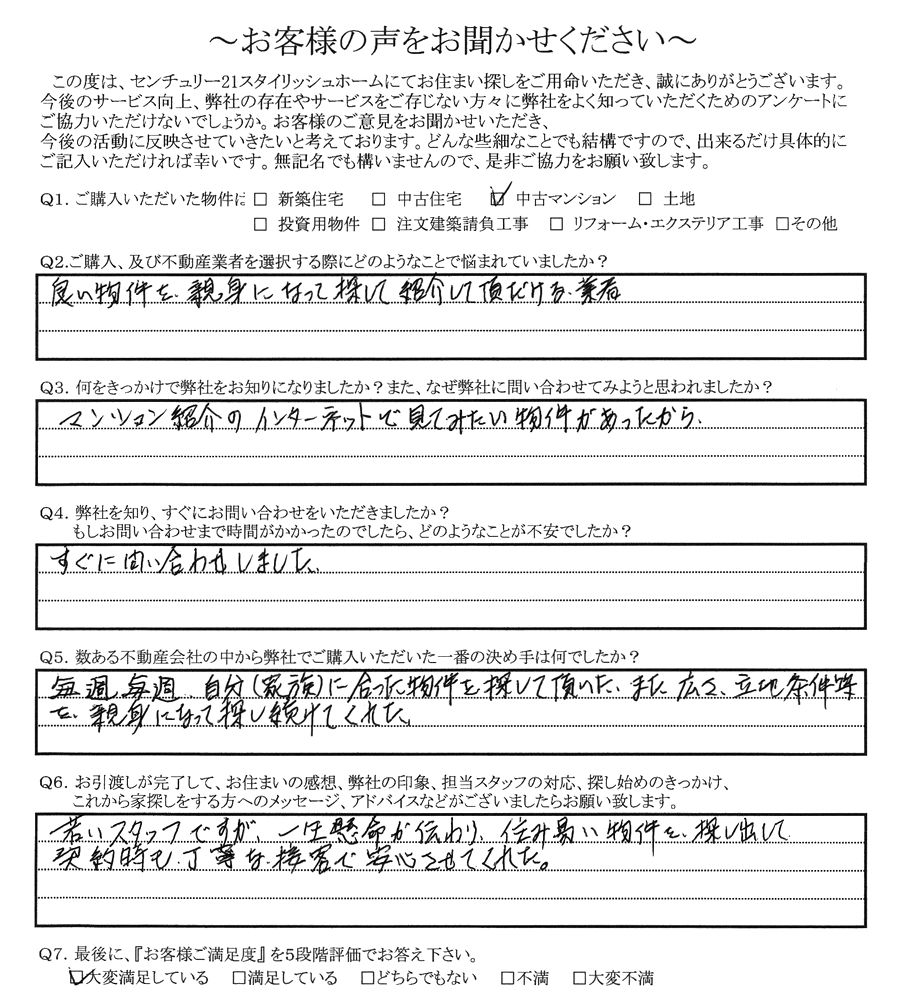 ～お客様の声をお聞かせください～
この度は、センチュリー21スタイリッシュホームにてお住まい探しをご用命いただき、誠にありがとうございます。
今後のサービス向上、弊社の存在やサービスをご存じない方々に弊社をよく知っていただくためのアンケートに
ご協力いただけないでしょうか。お客様のご意見をお聞かせいただき、
今後の活動に反映させていきたいと考えております。どんな些細なことでも結構ですので、出来るだけ具体的に
ご記入いただければ幸いです。無記名でも構いませんので、是非ご協力をお願い致します。
Q1. ご購入いただいた物件に □ 新築住宅 □ 中古住宅 ☑ 中古マンション □ 土地
□ 投資用物件 □ 注文建築請負工事 □ リフォーム・エクステリア工事 □その他
Q2.ご購入、及び不動産業者を選択する際にどのようなことで悩まれていましたか？
良い物件を、親身になって探して紹介して頂だける、業者
Q3. 何をきっかけで弊社をお知りになりましたか？また、なぜ弊社に問い合わせてみようと思われましたか？
マンション紹介のインターネットで見てみたい物件があったから、
Q4. 弊社を知り、すぐにお問い合わせをいただきましたか？
もしお問い合わせまで時間がかかったのでしたら、どのようなことが不安でしたか？
すぐに問い合わせしました、
Q5. 数ある不動産会社の中から弊社でご購入いただいた一番の決め手は何でしたか？
毎週、毎週、自分（家族）に合った物件を探して頂いた、また広さ、立地条件等
を、親身になって探し続けてくれた、
Q6. お引渡しが完了して、お住まいの感想、弊社の印象、担当スタッフの対応、探し始めのきっかけ、
これから家探しをする方へのメッセージ、アドバイスなどがございましたらお願い致します。
若いスタッフですが、一生懸命が伝わり、住み易い物件を、探し出して
契約時も、丁寧な、接客で安心させてくれた。
Q7. 最後に、『お客様ご満足度』を5段階評価でお答え下さい。
☑大変満足している □満足している □どちらでもない □不満 □大変不満